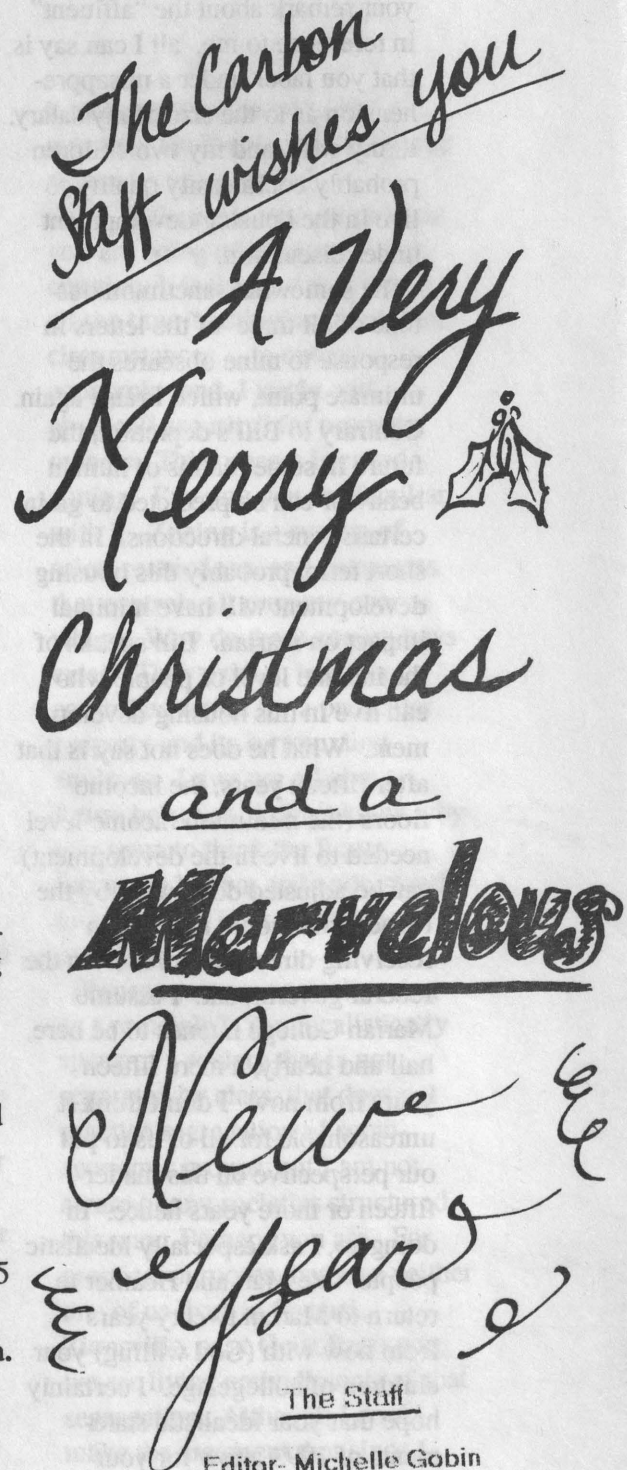 The Carbon
Staff wishes you
A Very
Merry
Christmas
and a
Marvelous
New
Year
The Staff
Editor- Michelle Gobin